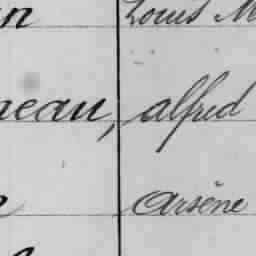 n Louis M
neau, alfred
e Arsène